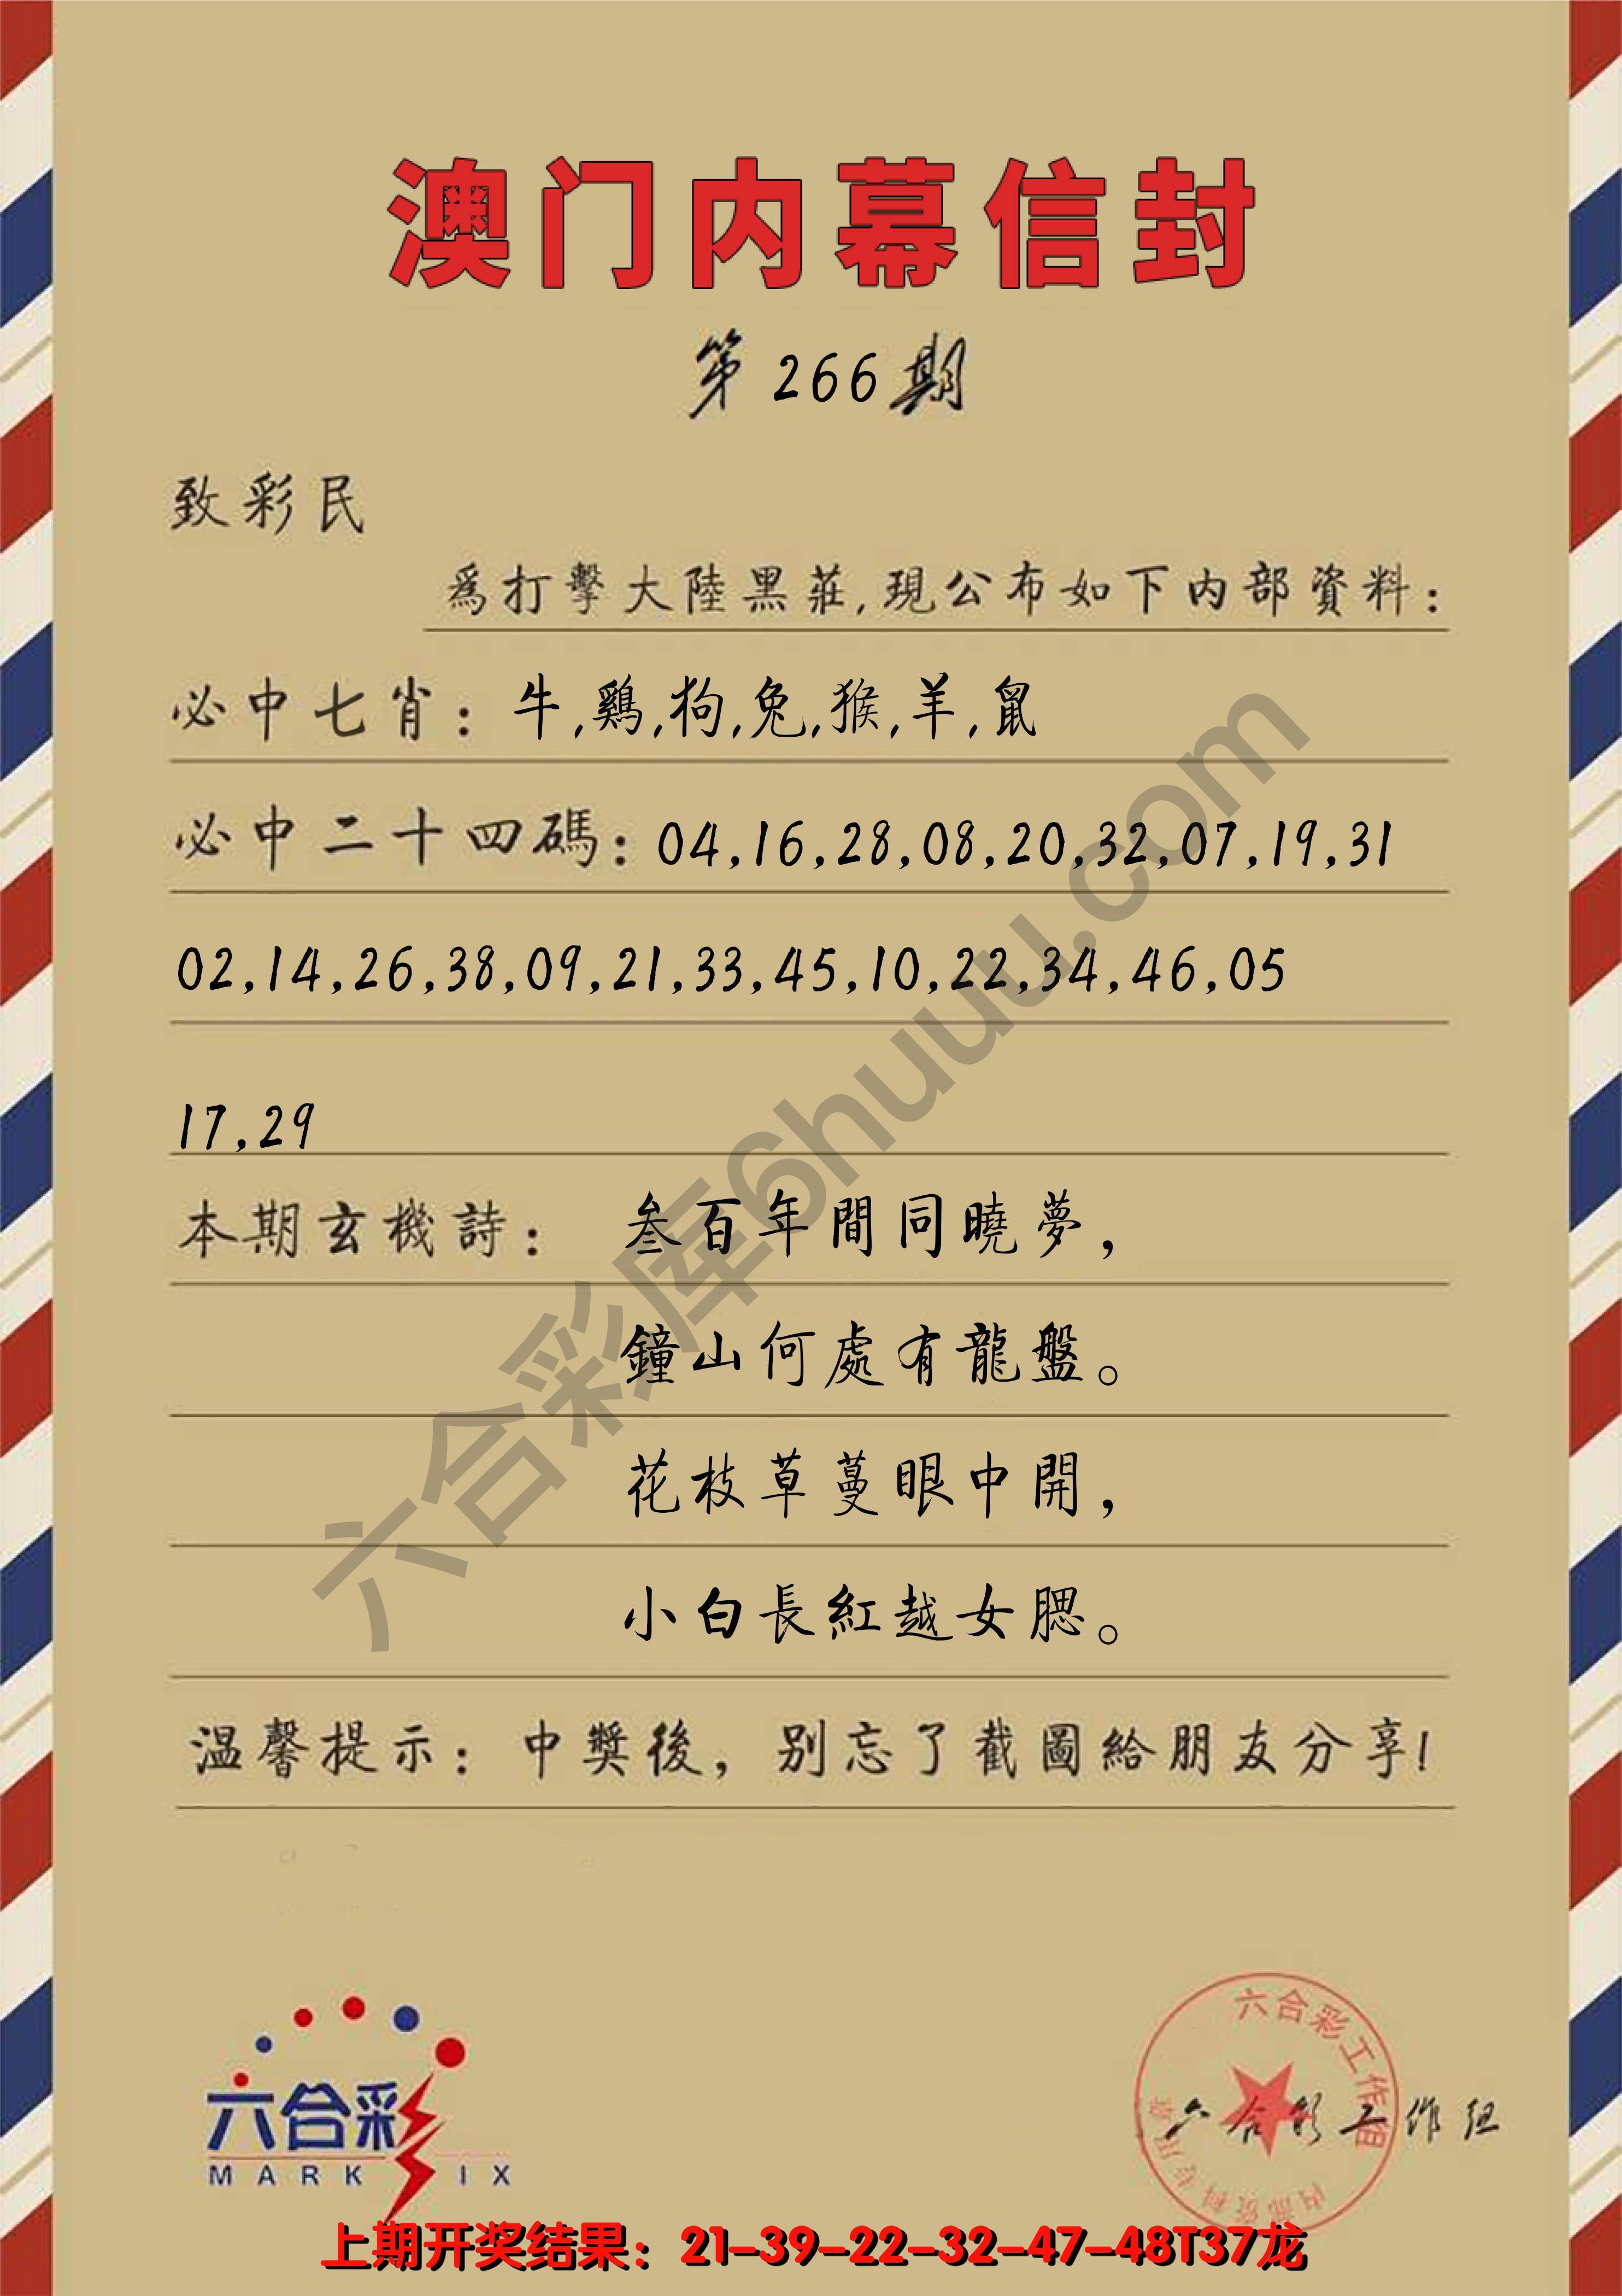 澳门内幕信封
第266期
致彩民
爲打擊大陸黑莊,現公布如下内部資料:
必中七肖: 牛,鷄,狗,兔,猴,羊,鼠
必中二十四碼: 04,16,28,08,20,32,07,19,31
02,14,26,38,09,21,33,45,10,22,34,46,05
17,29
本期玄機詩: 叁百年間同曉夢,
鐘山何處有龍盤。
花枝草蔓眼中開,
小白長紅越女腮。
温馨提示: 中獎後,别忘了截圖給朋友分享!
六合彩库6huuu.com
六合彩
MARK IX
六合彩工作组
内部资料专用章
六合彩工作组
上期开奖结果:21-39-22-32-47-48T37龙